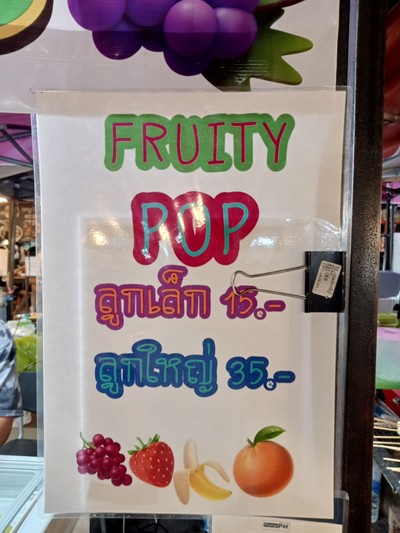 FRUITY
POP
ลูกเล็ก 15.-
ลูกใหญ่ 35.-